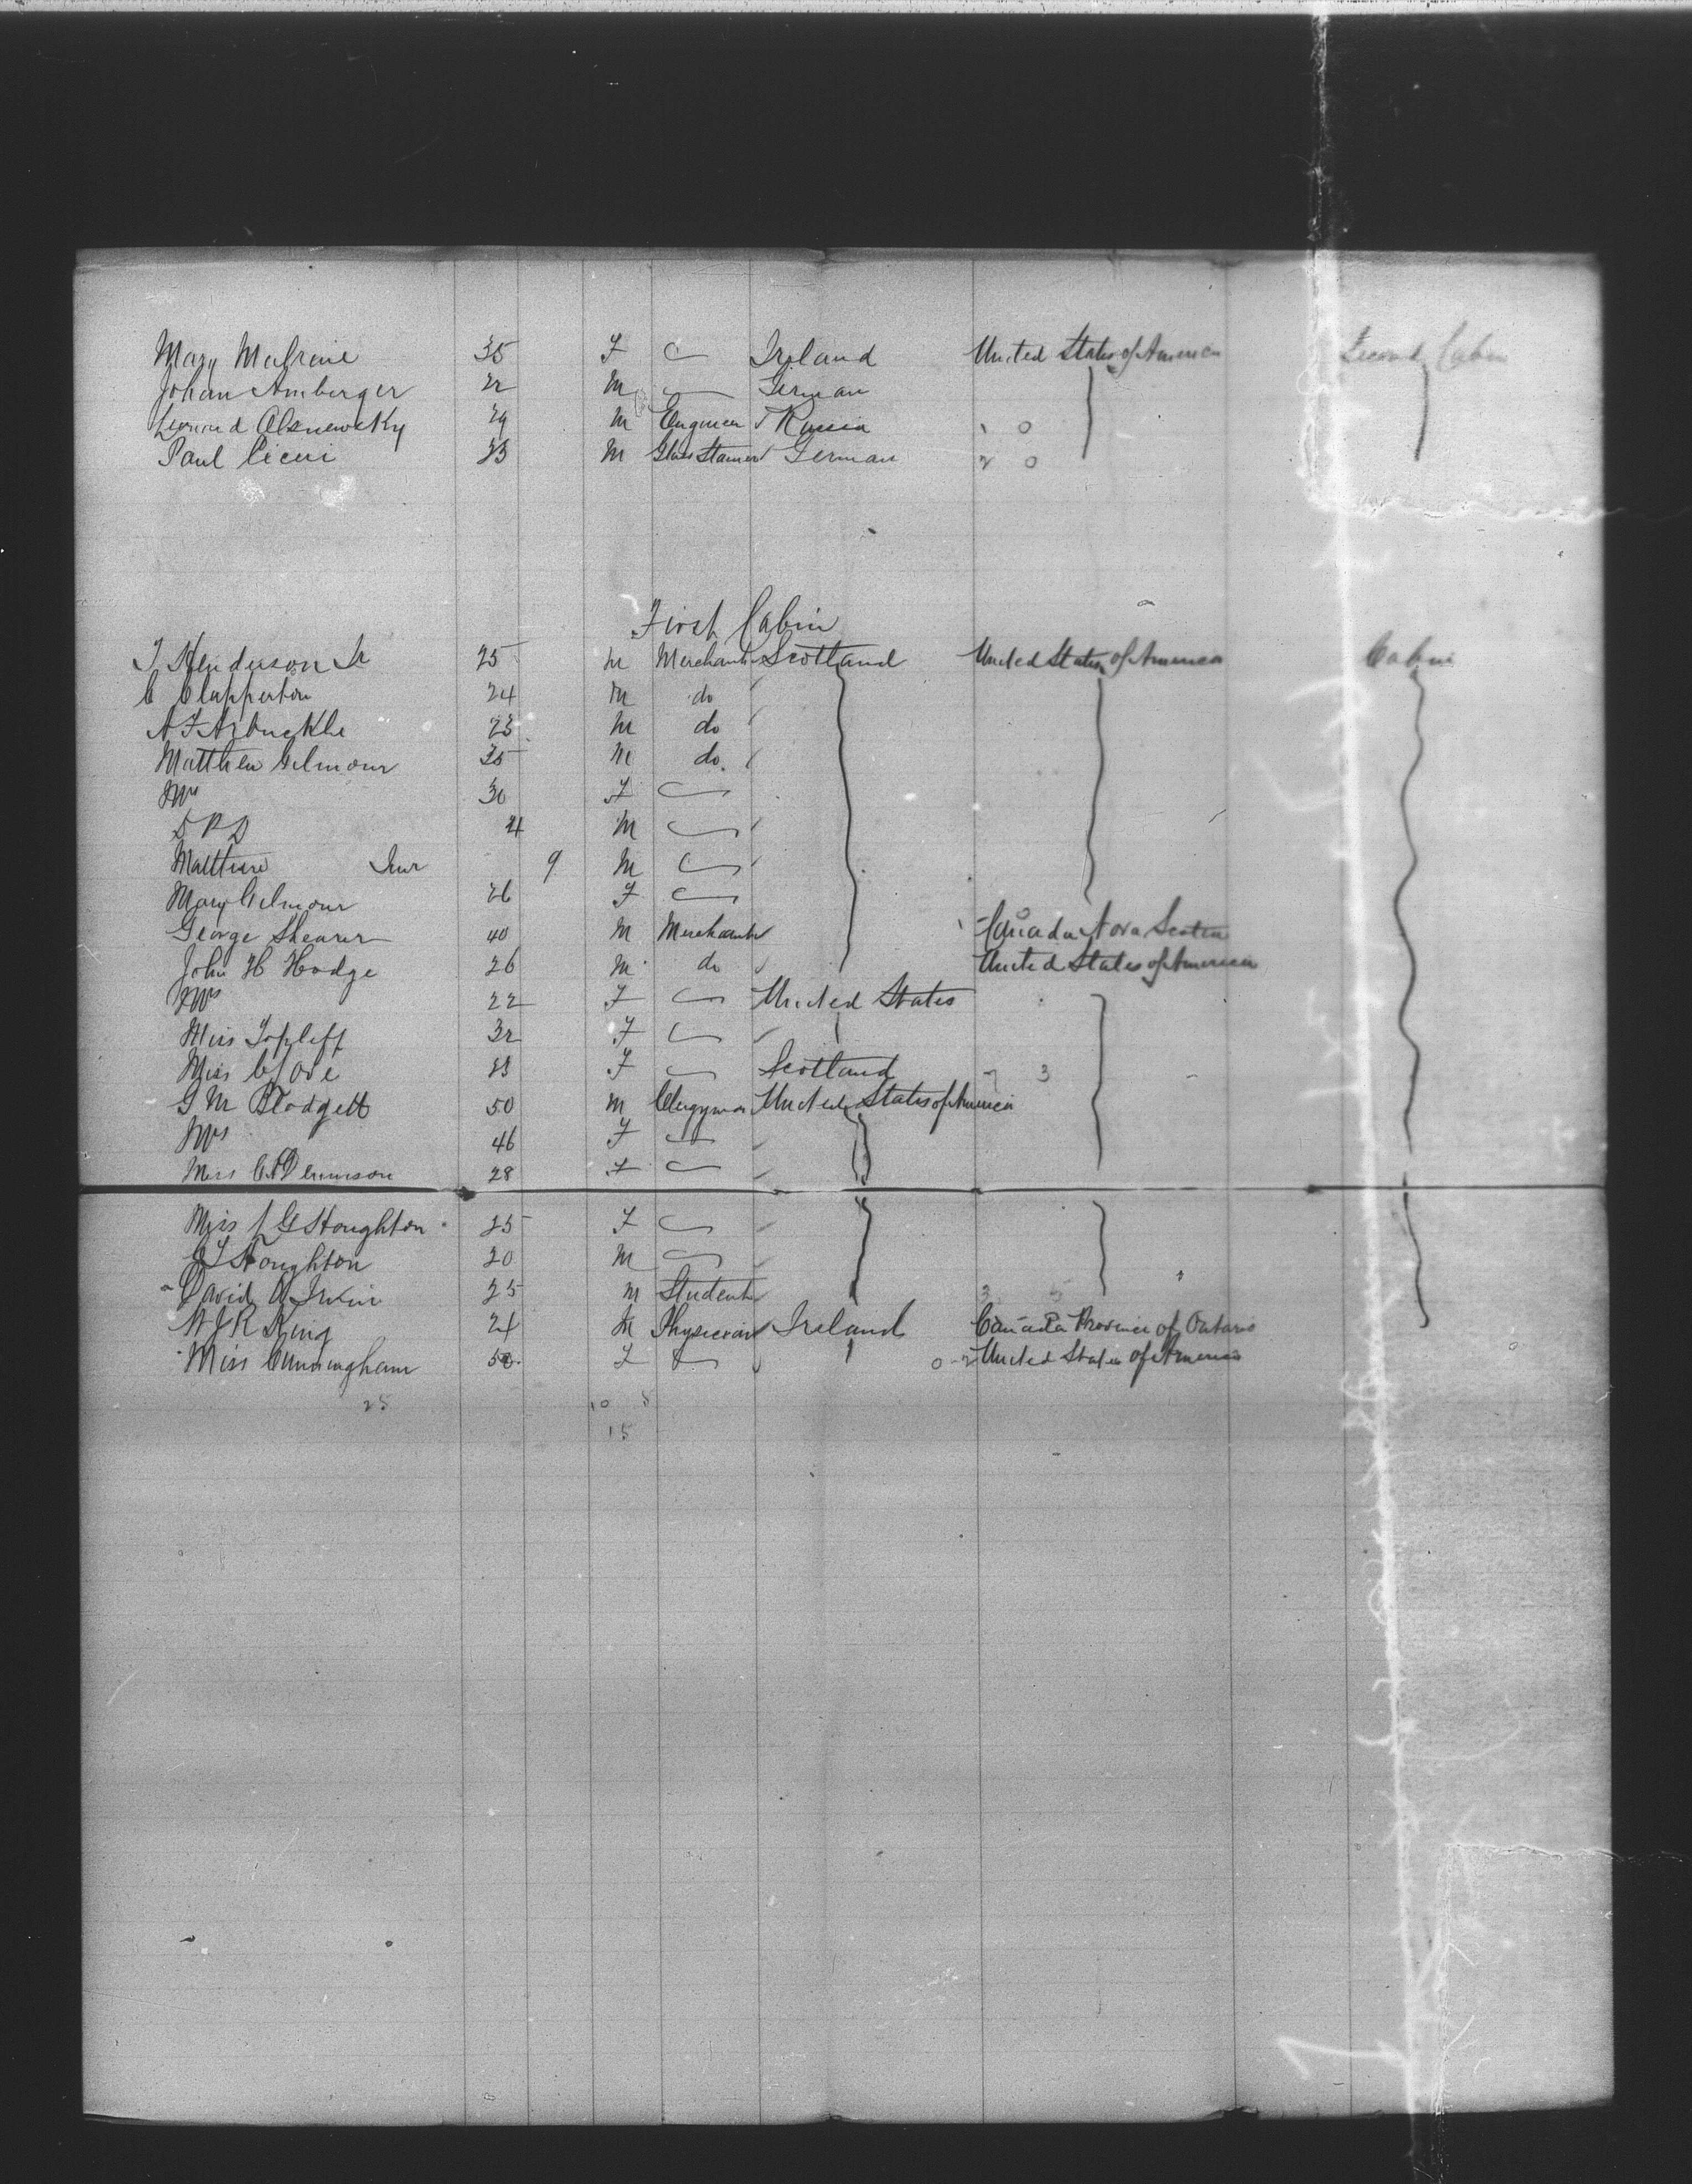 Mary 35 F Ireland United States of America Second Cabin
Johan Amberger 22 M German
Leonard 29 M Engineer Russia 1 0
Paul 33 M German 2 0
First Cabin
J Henderson Jr 25 M Merchant Scotland United States of America Cabin
C Clapperton 24 M do
A F Arbuckle 23 M do
Matthew Gilmour 35 M do
Mrs 30 F
4 M
Matthew Junr 9 M
Mary Gilmour 26 F
George Shearer 40 M Merchant Canada Nova Scotia
John H Hodge 26 M do United States of America
Mrs 22 F United States
Miss Topliff 32 F
Miss F Scotland 7 3
G M Blodgett 50 M Clergyman United States of America
Mrs 46 F
Miss Dennison 28 F
Miss G Houghton 25 F
Houghton 20 M
David Irwin 25 M Student 3 5
W J R King 24 M Physician Ireland Canada Province of Ontario
Miss Cunningham F 0 2 United States of America
25 10 5
15